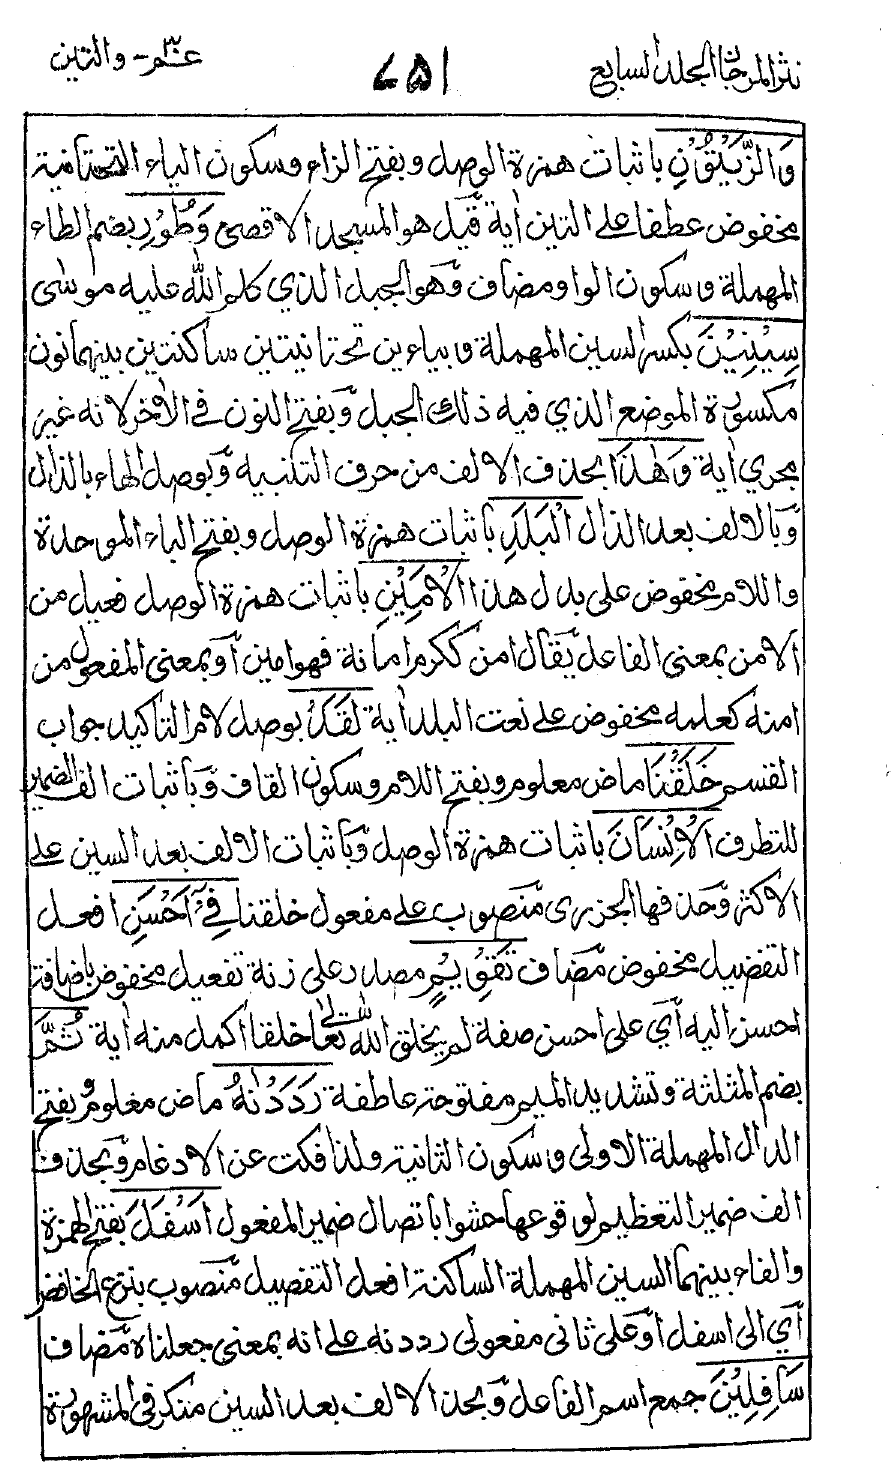 نثر المرجان الجلد السابع ٧٥١ عمّ - والتين
وَالزَّيْتُوْنِ باثبات همزة الوصل وبفتح الزاء وسكون الياء التحتانية
مخفوض عطفا على التين اٰية قيل هو المسجد الاقصىٰ وَطُوْرِ بضم الطاء
المهملة وسكون الواو مضاف وهو الجبل الذي كلم الله عليه موسىٰ
سِيْنِيْنَ بكسر السين المهملة وبياءين تحتانيتين ساكنتين بينهما نون
مكسورة الموضع الذي فيه ذلك الجبل وبفتح النون في الاٰخر لانه غير
مجري اٰية وَهٰذَا بحذف الالف من حرف التنبيه وبوصل الهاء بالذال
وبالالف بعد الذال الْبَلَدِ باثبات همزة الوصل وبفتح الباء الموحدة
واللام مخفوض على بدل هذا الْاَمِيْنِ باثبات همزة الوصل فعيل من
الامن بمعنى الفاعل يقال امن ككرم امانة فهو امين أو بمعنى المفعول من
امنه كعلمه مخفوض على نعت البلد اٰية لَقَدْ بوصل لام التاكيد جواب
القسم خَلَقْنَا ماض معلوم وبفتح اللام وسكون القاف وباثبات الف الضمير
للتطرف الْاِنْسَانَ باثبات همزة الوصل وباثبات الالف بعد السين على
الاكثر وحذفها الجزرى منصوب على مفعول خلقنا فِيْٓ اَحْسَنِ افعل
التفضيل مخفوض مضاف تَقْوِيْمٍ مصدر على زنة تفعيل مخفوض باضافة
احسن اليه أي على احسن صفة لم يخلق الله تعالىٰ خلقا اكمل منه اٰية ثُمَّ
بضم المثلثة وتشديد الميم مفتوحة عاطفة رَدَدْنٰهُ ماض معلوم وبفتح
الدال المهملة الاولى وسكون الثانية ولذا فكت عن الادغام وبحذف
الف ضمير التعظيم لوقوعها حشوا باتصال ضمير المفعول اَسْفَلَ بفتح الهمزة
والفاء بينهما السين المهملة الساكنة افعل التفضيل منصوب بنزع الخافض
أي الى اسفل او على ثاني مفعولي رددنه على انه بمعنى جعلناه مضاف
سَافِلِيْنَ جمع اسم الفاعل وبحذف الالف بعد السين منكر في المشهورة